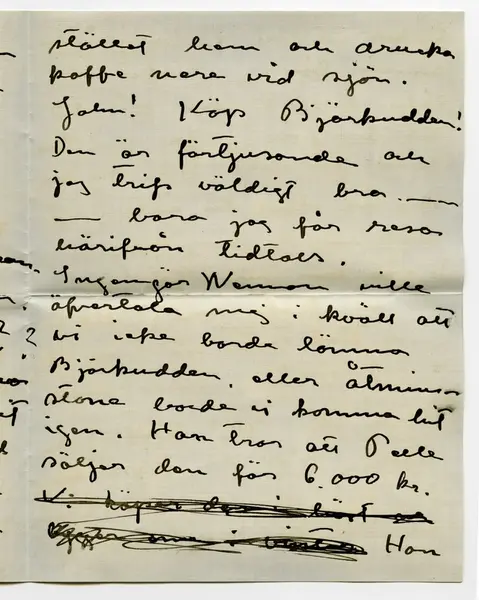 stället hem och drucka
kaffe nere vid sjön.
John! Köp Björkudden!
Den är förtjusande och
jag trifs väldigt bra. —
— bara jag får resa
härifrån tidtals.
Ingenjör Weman ville
öfvertala mig i kväll att
vi icke borde lämna
Björkudden, eller åtmin-
stone borde vi komma hit
igen. Han tror att Palle
säljer den för 6.000 kr.
Vi köper den i höst
Han